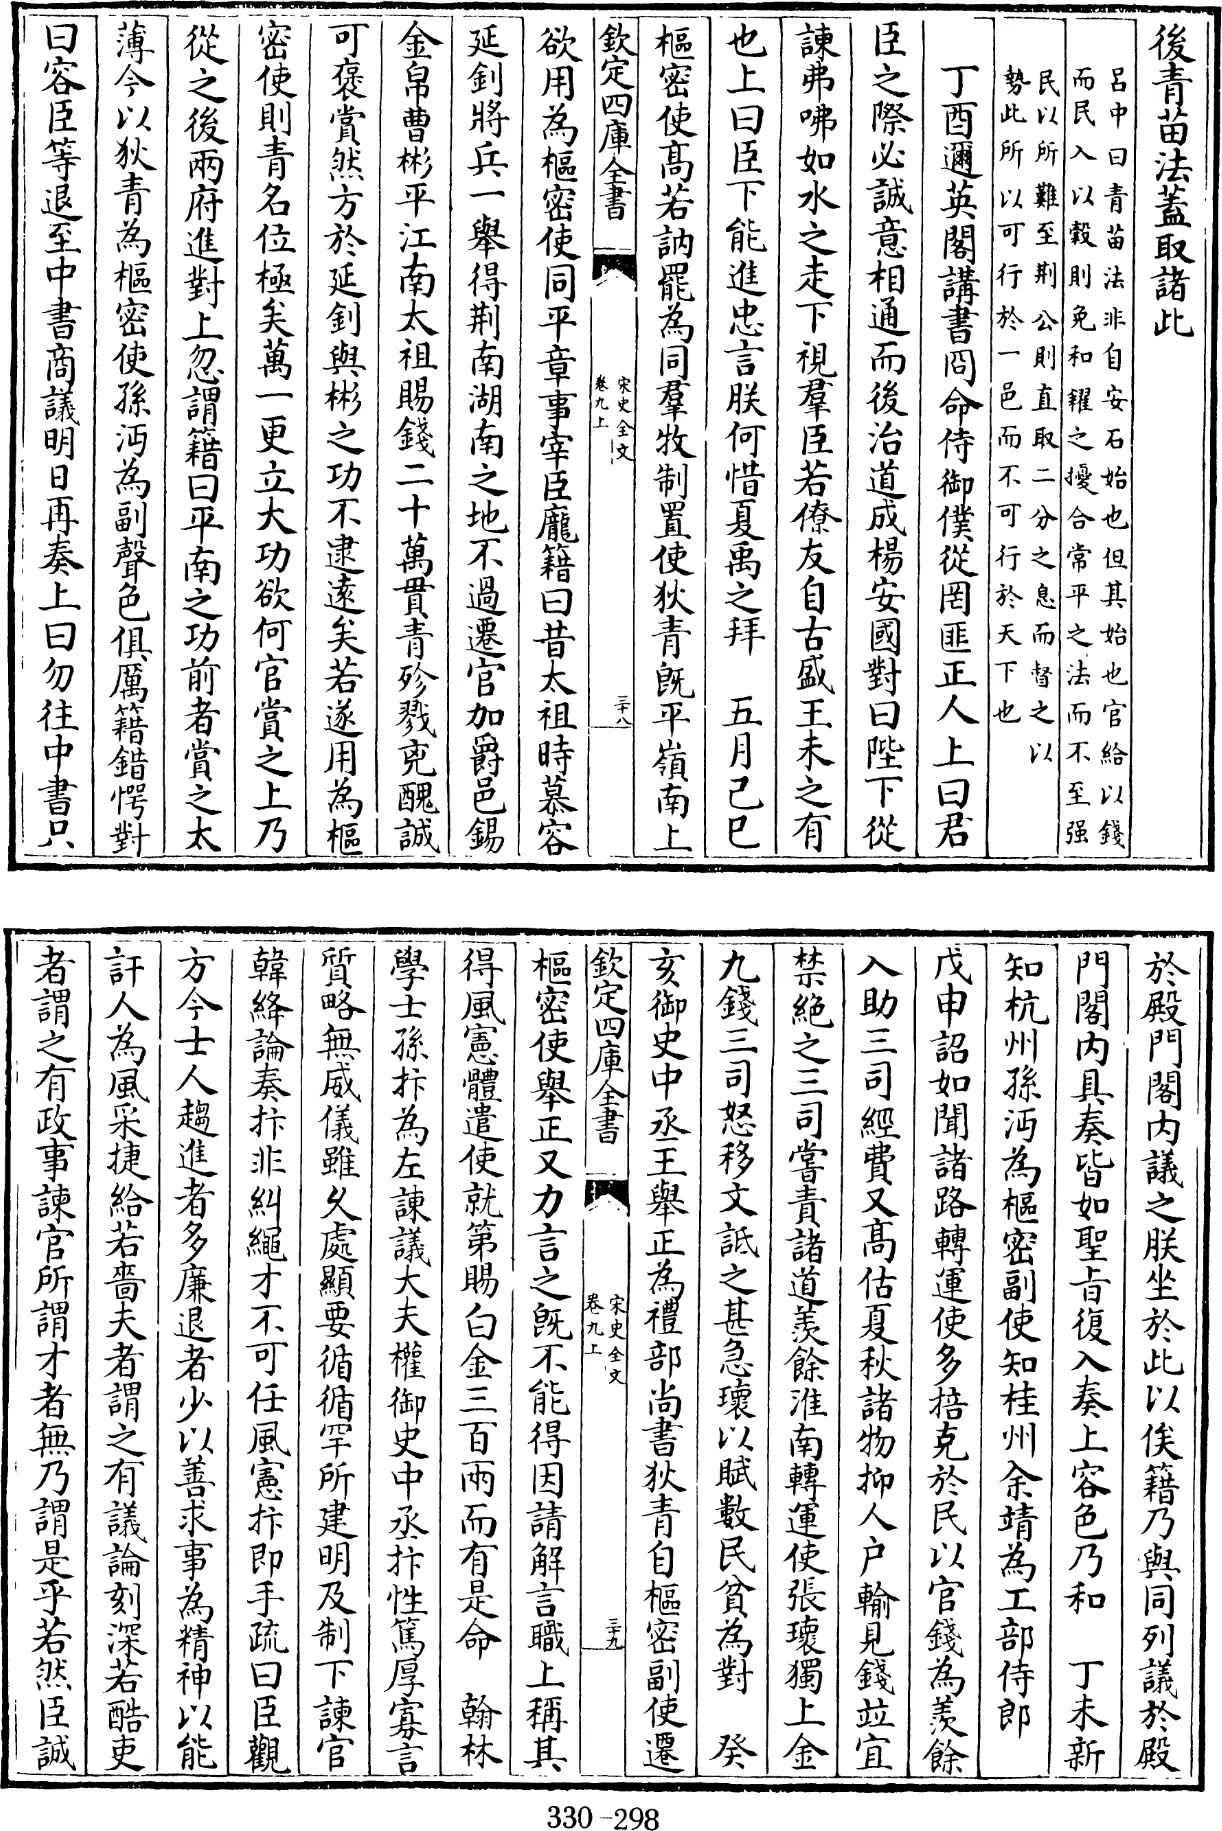 後青苗法蓋取諸此
呂中曰青苗法非自安石始也但其始也官給以錢
而民入以穀則免和糴之擾合常平之法而不至强
民以所難至荆公則直取二分之息而督之以
勢此所以可行於一邑而不可行於天下也
丁酉邇英閣講書冏命侍御僕從罔匪正人上曰君
臣之際必誠意相通而後治道成楊安國對曰陛下從
諫弗咈如水之走下視羣臣若僚友自古盛王未之有
也上曰臣下能進忠言朕何惜夏禹之拜　五月己巳
樞密使髙若訥罷為同羣牧制置使狄青既平嶺南上
欽定四庫全書
宋史全文
卷九上
三十八
欲用為樞密使同平章事宰臣龐籍曰昔太祖時慕容
延釗將兵一舉得荆南湖南之地不過遷官加爵邑錫
金帛曹彬平江南太祖賜錢二十萬貫青殄戮兇醜誠
可褒賞然方於延釗與彬之功不逮逺矣若遂用為樞
密使則青名位極矣萬一更立大功欲何官賞之上乃
從之後兩府進對上忽謂籍曰平南之功前者賞之太
薄今以狄青為樞密使孫沔為副聲色俱厲籍錯愕對
曰容臣等退至中書商議明日再奏上曰勿往中書只
於殿門閣内議之朕坐於此以俟籍乃與同列議於殿
門閣内具奏皆如聖旨復入奏上容色乃和　丁未新
知杭州孫沔為樞密副使知桂州余靖為工部侍郎
戊申詔如聞諸路轉運使多掊克於民以官錢為羨餘
入助三司經費又髙估夏秋諸物抑人户輸見錢竝宜
禁絶之三司嘗責諸道羨餘淮南轉運使張瓌獨上金
九錢三司怒移文詆之甚急瓌以賦數民貧為對　癸
亥御史中丞王舉正為禮部尚書狄青自樞密副使遷
欽定四庫全書
宋史全文
卷九上
三十九
樞密使舉正又力言之既不能得因請解言職上稱其
得風憲體遣使就第賜白金三百兩而有是命　翰林
學士孫抃為左諫議大夫權御史中丞抃性篤厚寡言
質略無威儀雖乆處顯要循循罕所建明及制下諫官
韓絳論奏抃非糾繩才不可任風憲抃即手疏曰臣觀
方今士人趨進者多廉退者少以善求事為精神以能
訐人為風采捷給若嗇夫者謂之有議論刻深若酷吏
者謂之有政事諫官所謂才者無乃謂是乎若然臣誠
330-298